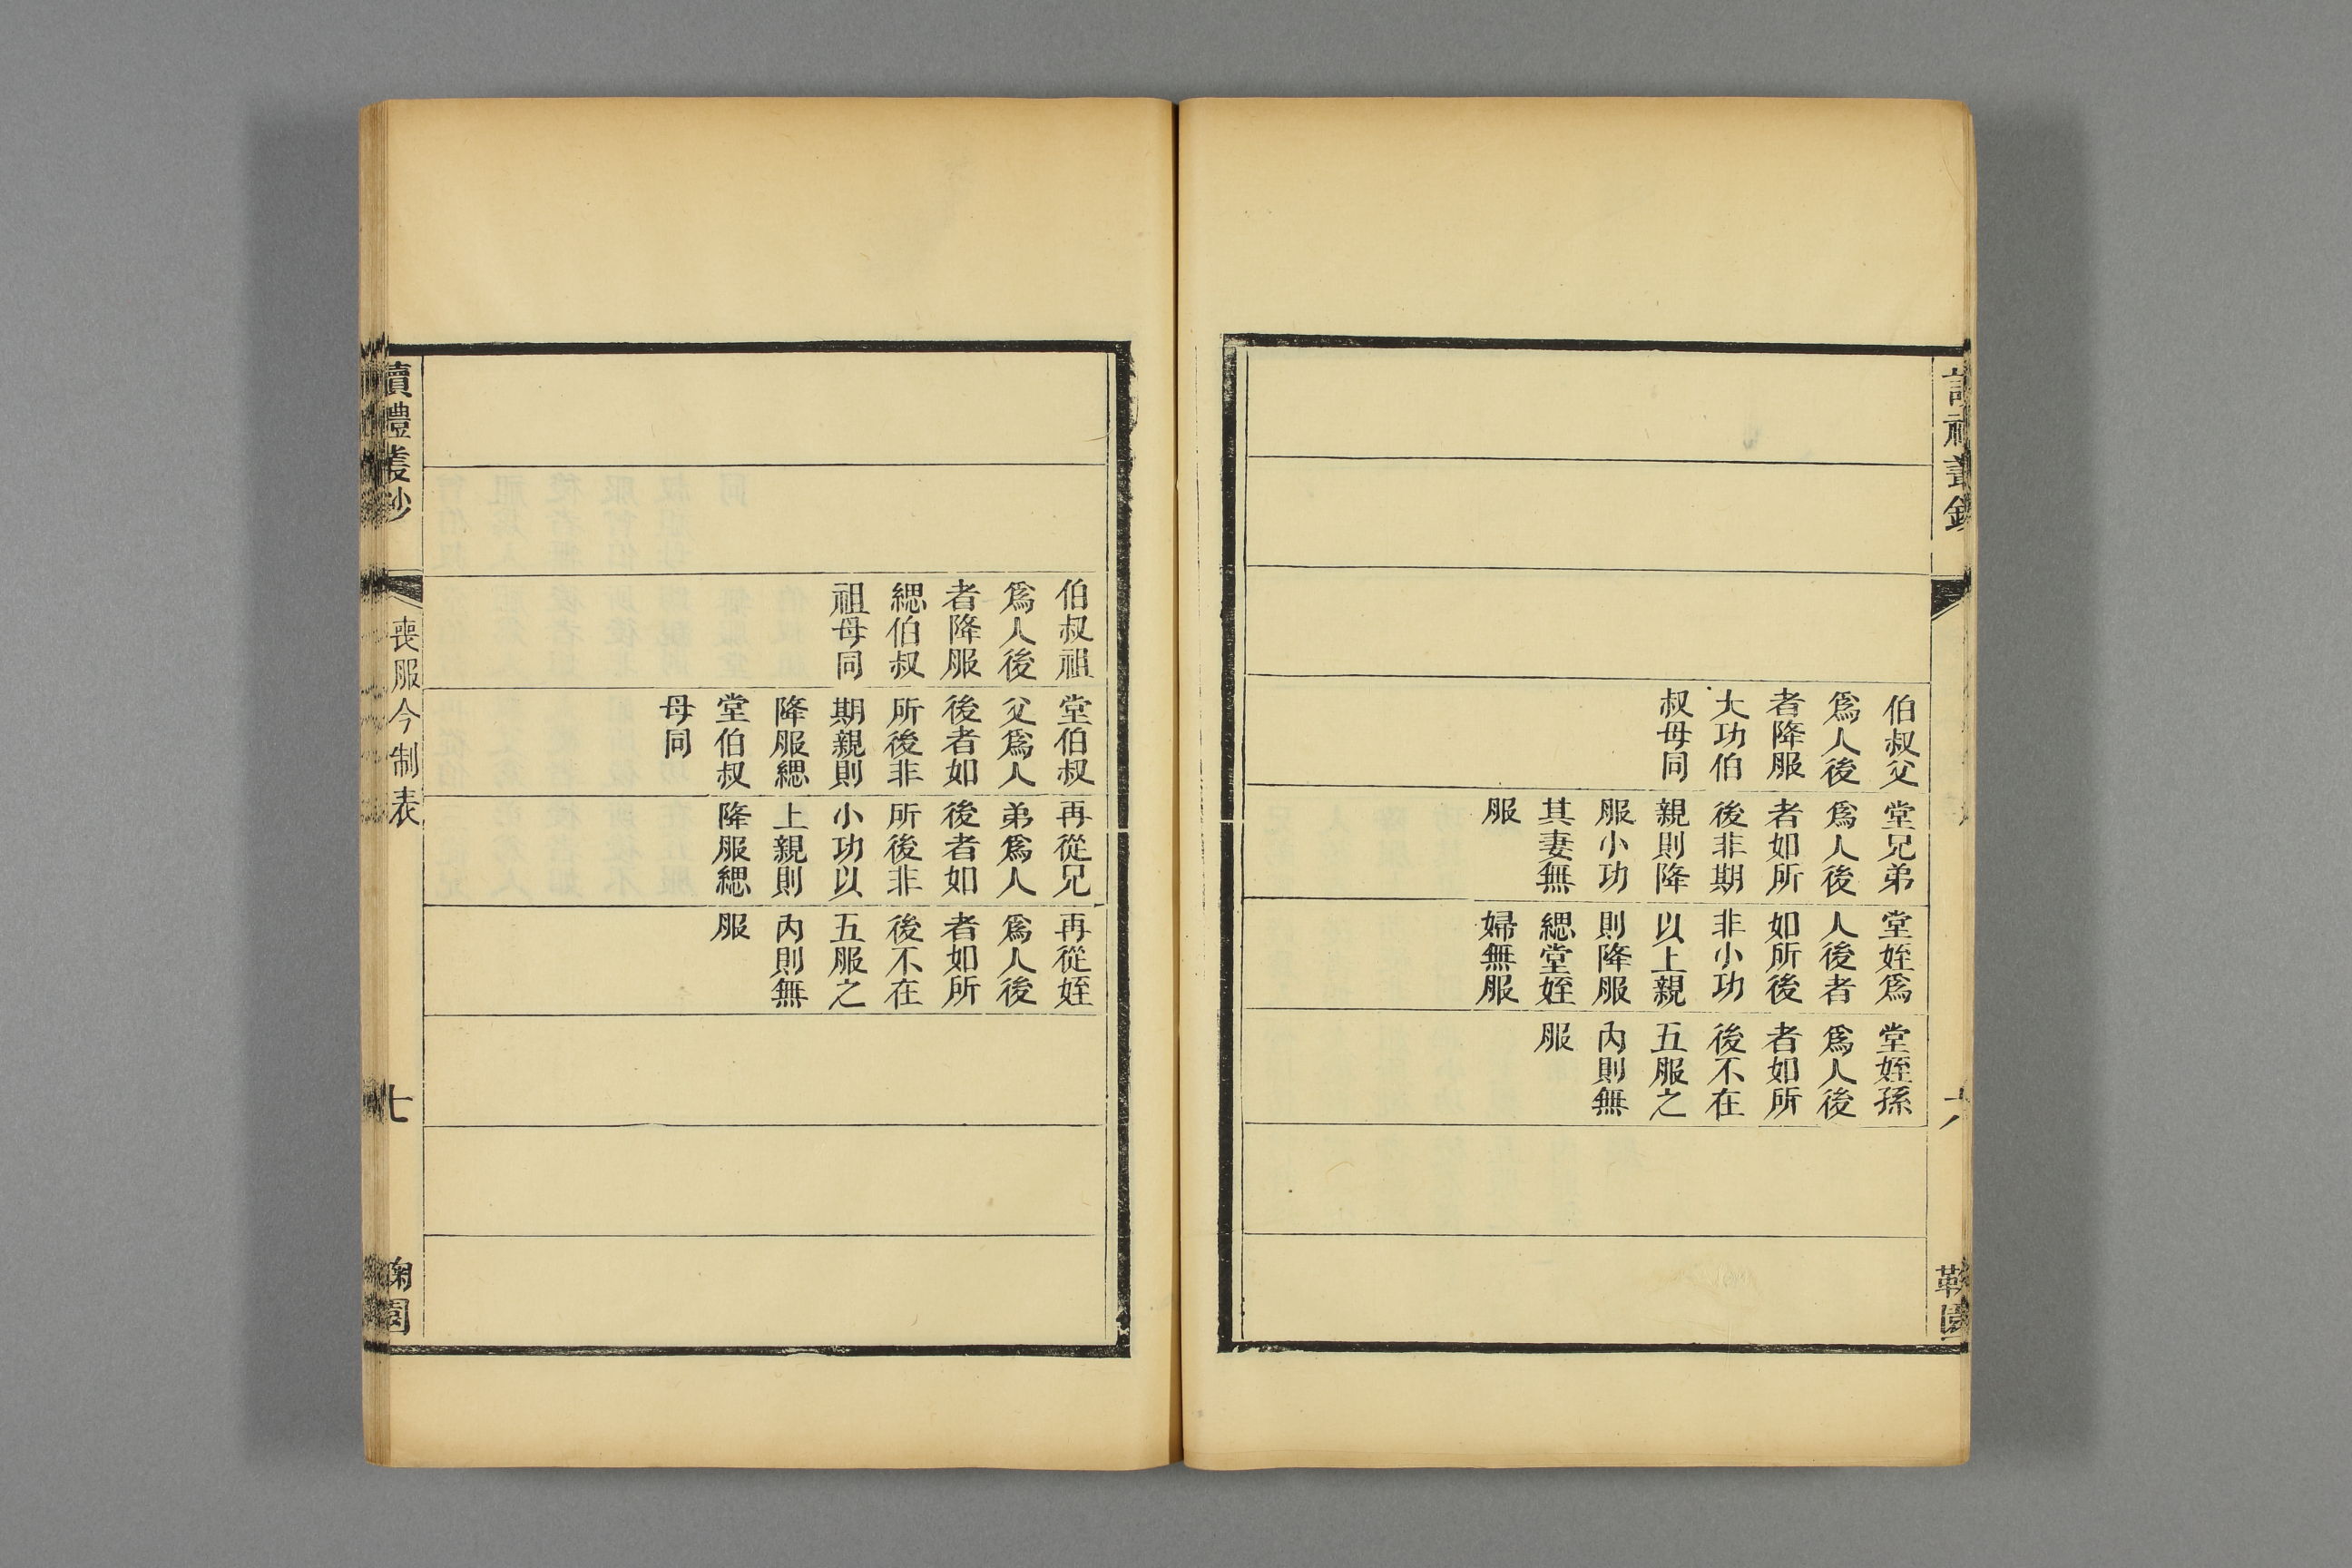 伯叔父
爲人後
者降服
大功伯
叔母同
堂兄弟
爲人後
者如所
後非期
親則降
服小功
其妻無
服
堂姪爲
人後者
如所後
非小功
以上親
則降服
緦堂姪
婦無服
堂姪孫
爲人後
者如所
後不在
五服之
內則無
服
伯叔祖
爲人後
者降服
緦伯叔
祖母同
堂伯叔
父爲人
後者如
所後非
期親則
降服緦
堂伯叔
母同
再從兄
弟爲人
後者如
所後非
小功以
上親則
降服緦
再從姪
爲人後
者如所
後不在
五服之
內則無
服
讀禮叢鈔
喪服今制表
七